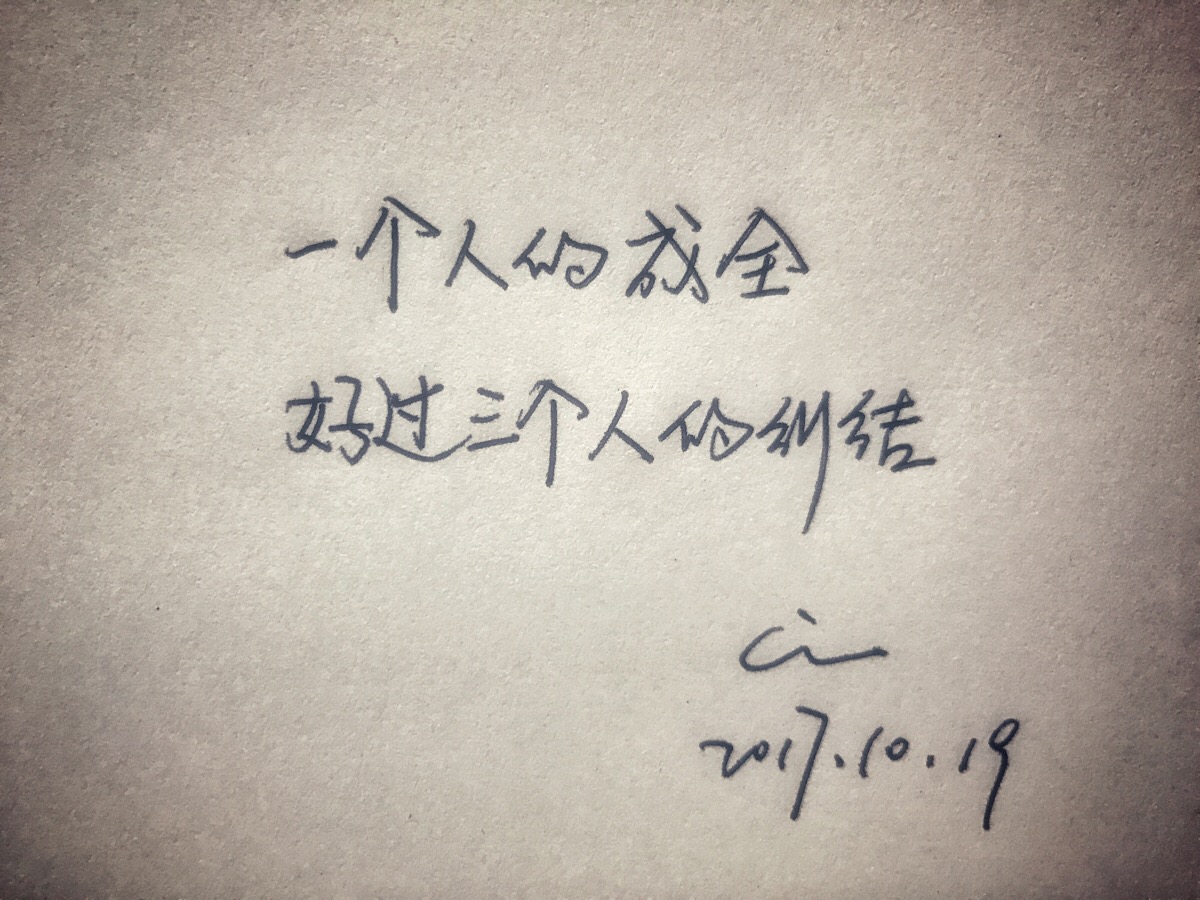 一个人的成全
好过三个人的纠结
Ci
2017.10.19